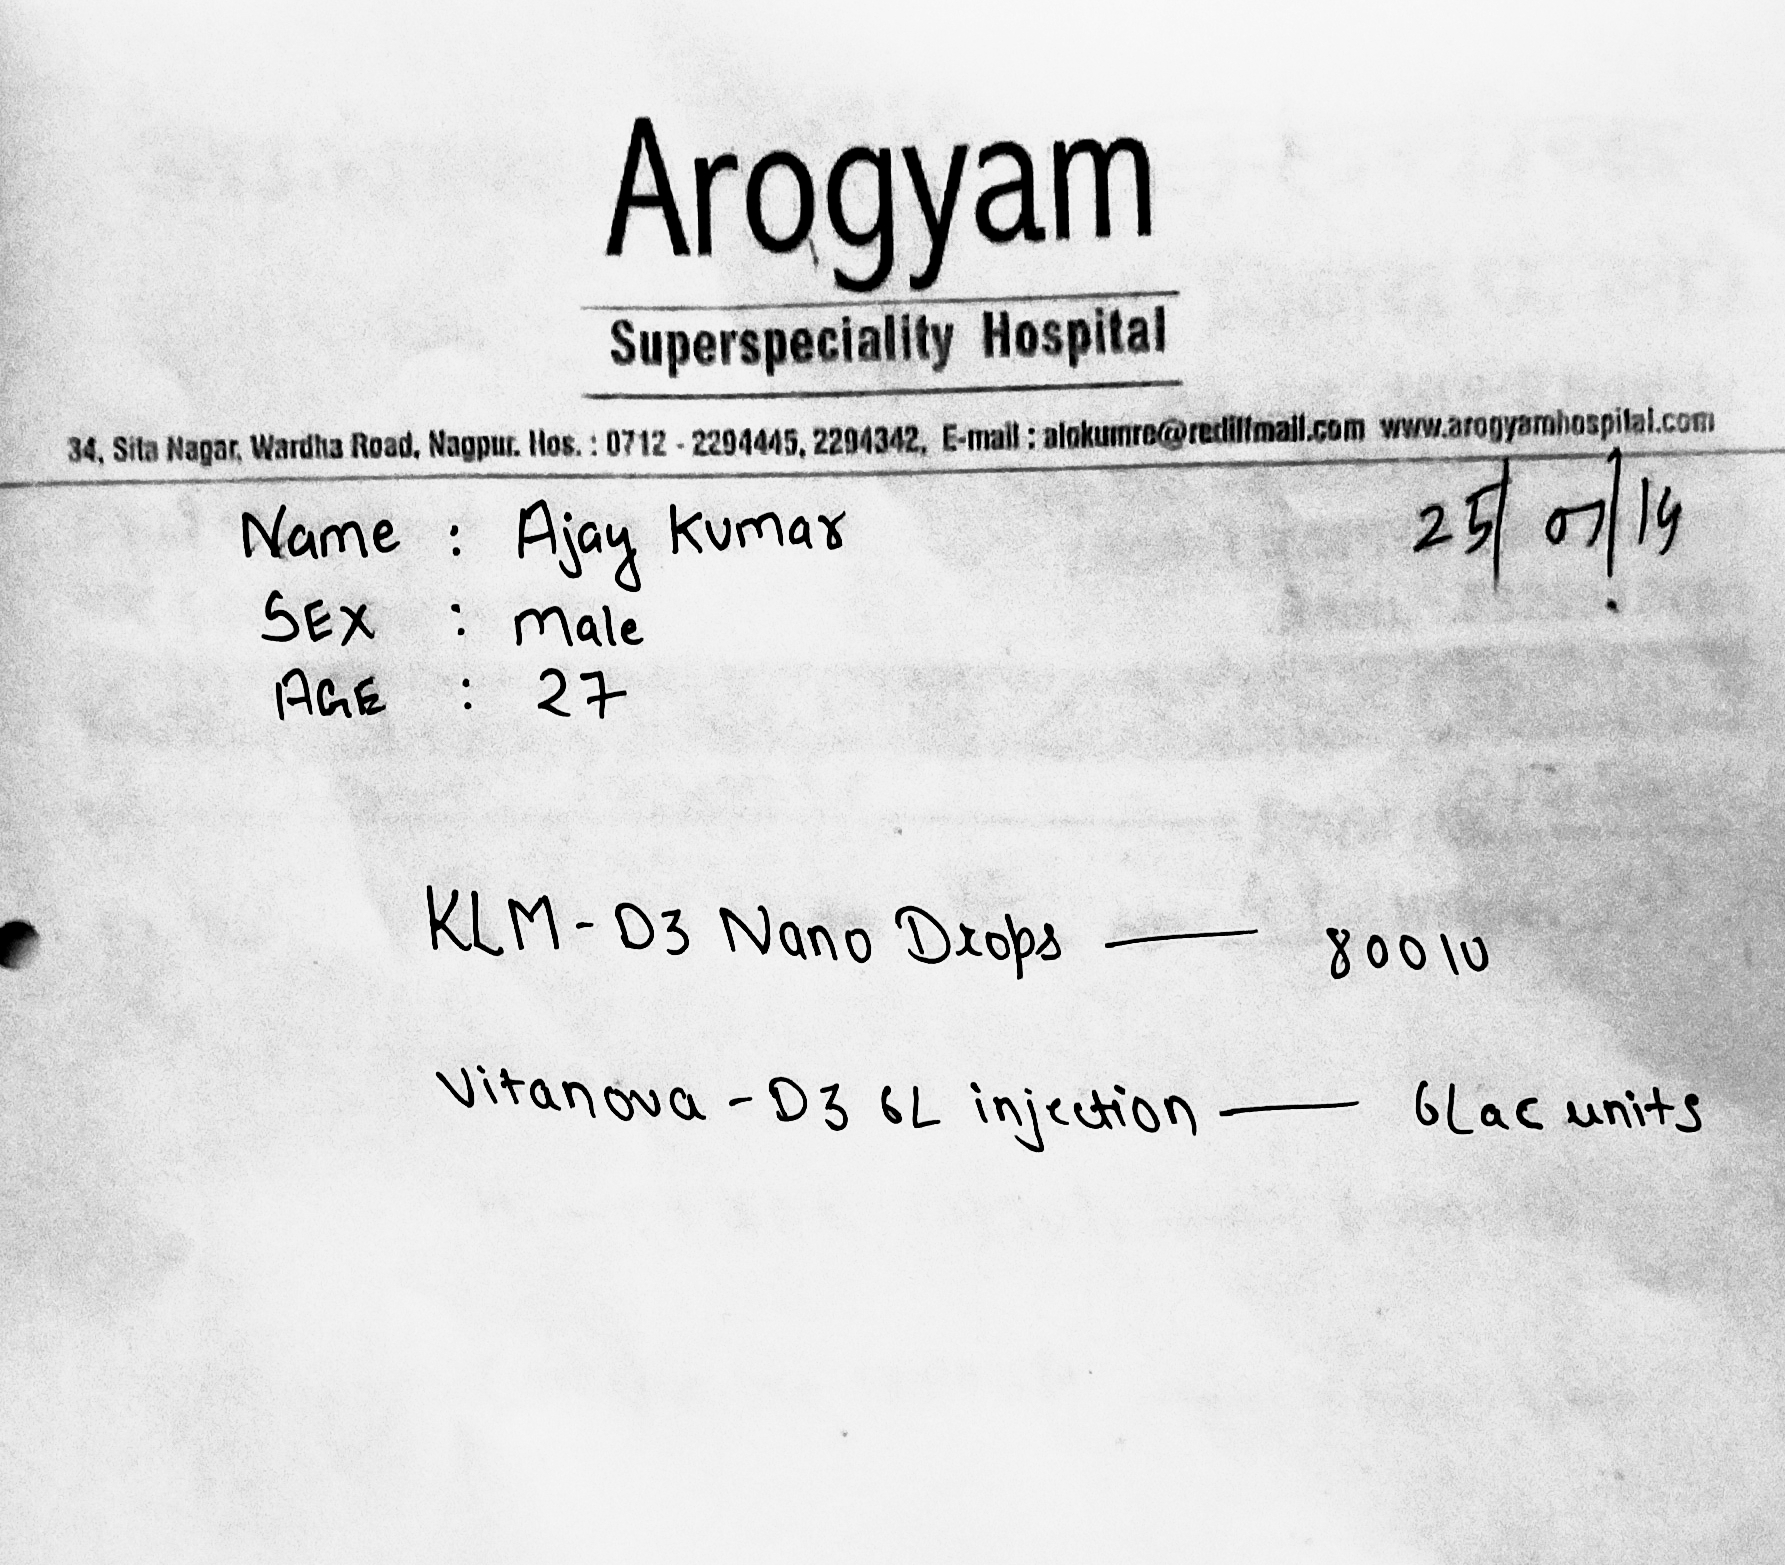 Arogyam
Superspeciality Hospital
34, Sita Nagar, Wardha Road, Nagpur. Hos. : 0712 - 2294445, 2294342, E-mail : alokumre@rediffmail.com www.arogyamhospital.com
Name : Ajay Kumar 25/07/19
SEX : Male
AGE : 27
KLM-D3 Nano Drops — 800 IU
Vitanova-D3 6L injection — 6Lac units